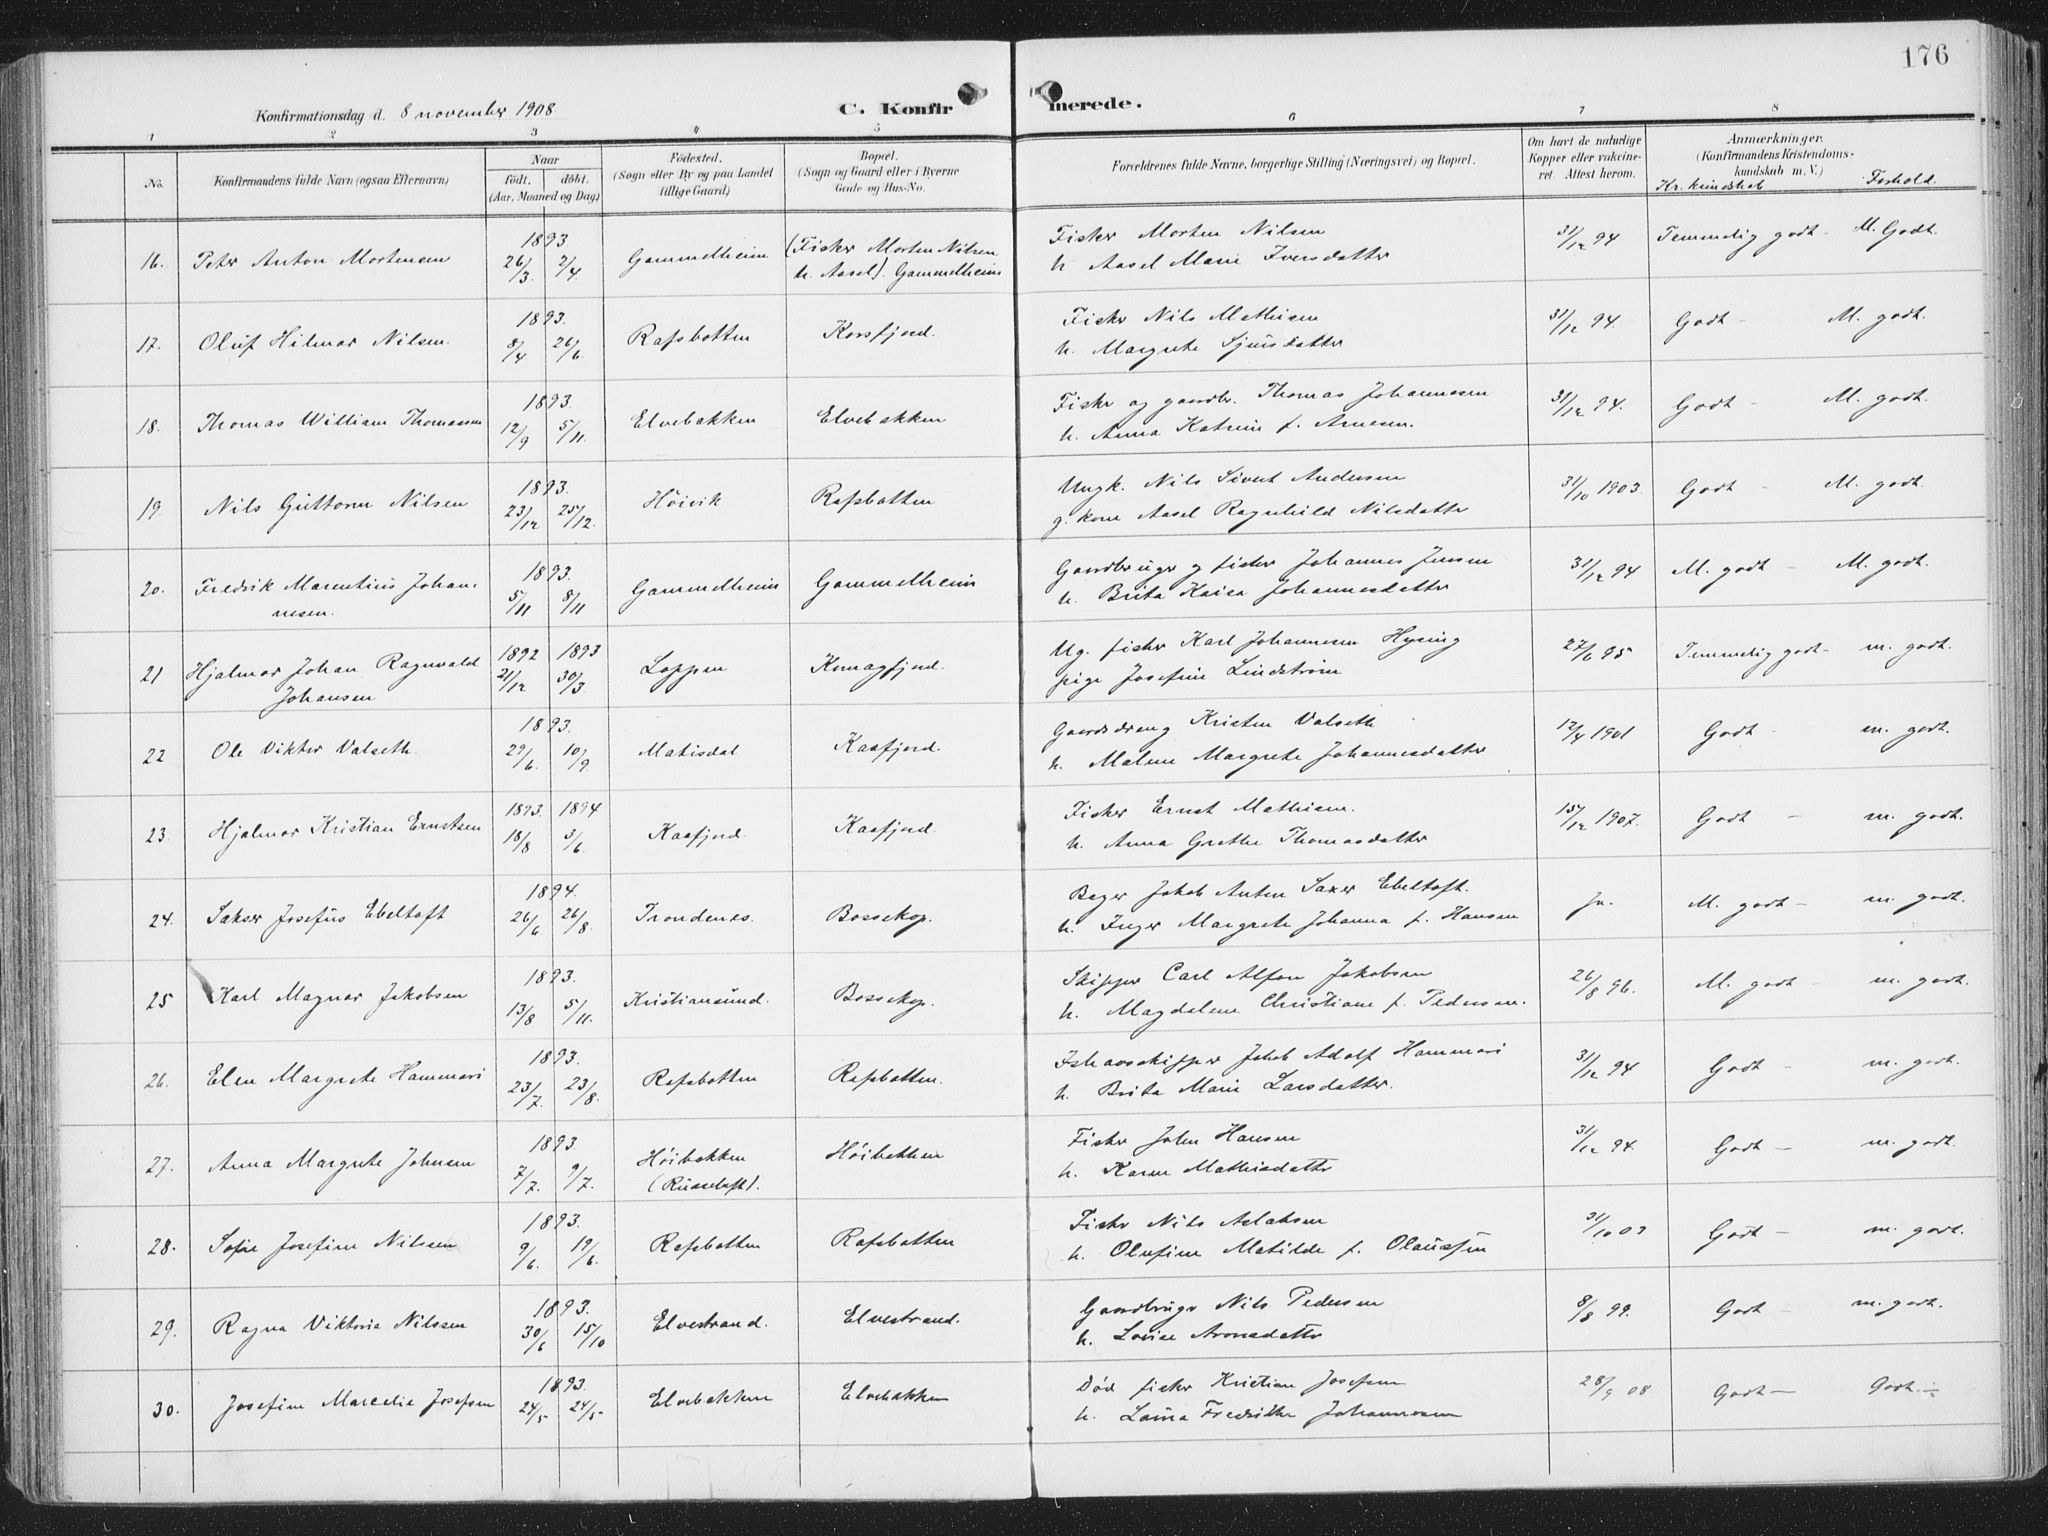 176
Konfirmationsdag d. 8 november 1908
C. Konfirmerede.
1 2 3 4 5 6 7 8
No.
Konfirmandens fulde Navn (ogsaa Efternavn)
Naar
født. døbt.
(Aar, Maaned og Dag)
Fødested.
(Sogn eller By og paa Landet
tillige Gaard)
Bopæl.
(Sogn og Gaard eller i Byerne
Gade og Hus-No.
Forældrenes fulde Navne, borgerlige Stilling (Næringsvei) og Bopæl.
Om havt de naturlige
Kopper eller vakcine-
ret. Attest herom.
Anmærkninger.
(Konfirmandens Kristendoms-
kundskab m. V.)
Kr. kundskab Forhold.
16. Peter Anton Mortensen 1893. 26/3. 2/4 Gammelheim (Fisker Morten Nilsen
h. Aasel). Gammelheim
Fisker Morten Nilsen
h. Aasel Marie Iversdatter
31/12 94 Temmelig godt - M. Godt.
17. Oluf Hilmar Nilsen. 1893. 8/4 26/6 Rafsbotten Korsfjord.
Fisker Nils Mathisen
h. Margrete Sjursdatter
31/12 94. Godt - M. godt.
18. Thomas William Thomassen 1893. 12/9 5/11. Elvebakken Elvebakken
Fisker og gaardbr. Thomas Johannesen
h. Anna Katrine f. Arnesen.
31/12 94. Godt - M. godt.
19. Nils Guttorm Nilsen 1893. 23/12 25/12. Höivik Rafsbotten
Ungk. Nils Sivert Andersen
g. kone Aasel Ragnhild Nilsdatter
31/10 1903. Godt - M. godt.
20. Fredrik Marentius Johan-
nesen. 1893. 5/11 8/11 Gammelheim Gammelheim
Gaardbruger g fisker Johannes Jensen
h. Brita Kaisa Johannesdatter
31/12 94 M. godt - M. godt.
21 Hjalmar Johan Ragnvald
Johansen 1892 1893 21/12 30/3. Loppen Komagfjord.
Ug. fisker Karl Johannesen Hysing
pige Josefine Lindström
27/6 95 Temmelig godt - m. godt.
22 Ole Viktor Valseth. 1893. 29/6. 10/9. Matisdal Kaafjord.
Gaardsdreng Kristen Valseth
h. Malene Margrete Johannesdatter
12/4 1901 Godt - m. godt.
23. Hjalmar Kristian Ernstsen 1893. 1894 18/8 3/6. Kaafjord Kaafjord.
Fisker Ernst Mathisen.
h. Anna Grethe Thomasdatter
15/12 1907. Godt - m. godt.
24. Sakser Josefus Ebeltoft 1894. 26/6 26/8. Trondenes. Bossekop.
Bager Jakob Anton Saxer Ebeltoft.
h. Inger Margrete Johanna f. Hansen
Ja. M. godt - m. godt.
25 Karl Magnar Jakobsen 1893. 13/8 5/11. Kristiansund. Bossekop.
Skipper Carl Alfon Jakobsen
h. Magdalene Christiane f. Pedersen.
26/8 96. M. godt - m. godt.
26. Elen Margrete Hammari 1893. 23/7. 23/8. Rafsbotten Rafsbotten.
Ishavsskipper Jakob Adolf Hammari
h. Brita Marie Larsdatter.
31/12 94 Godt - m. godt.
27. Anna Margrete Johnsen 1893. 7/7. 9/7. Höibakken
(Russeluft). Höibakken
Fisker John Hansen
h. Karen Mathisdatter
31/12 94. Godt - m. godt.
28. Sofie Josefine Nilssen 1893. 9/6. 19/6. Rafsbotten Rafsbotten
Fisker Nils Aslaksen
h. Olufine Matilde f. Olaussen
31/10 03 Godt - m. godt.
29. Ragna Viktoria Nilssen 1893. 30/6 15/10 Elvestrand. Elvestrand.
Gaardbruger Nils Pedersen
h. Lovise Aronsdatter
8/8 99. Godt - m. godt.
30. Josefine Marcelie Josefsen 1893. 24/5 24/5 Elvebakken Elvebakken
Död fisker Kristian Josefsen
h. Laura Fredrikke Johannesen
28/9 08 Godt - Godt. -